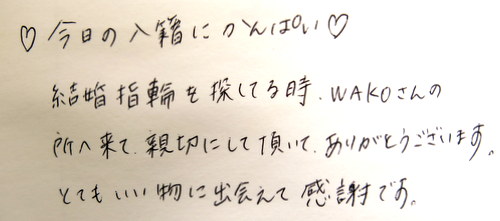 ♡今日の入籍にかんぱい♡
結婚指輪を探してる時、WAKOさんの
所へ来て、親切にして頂いて、ありがとうございます。
とてもいい物に出会えて感謝です。